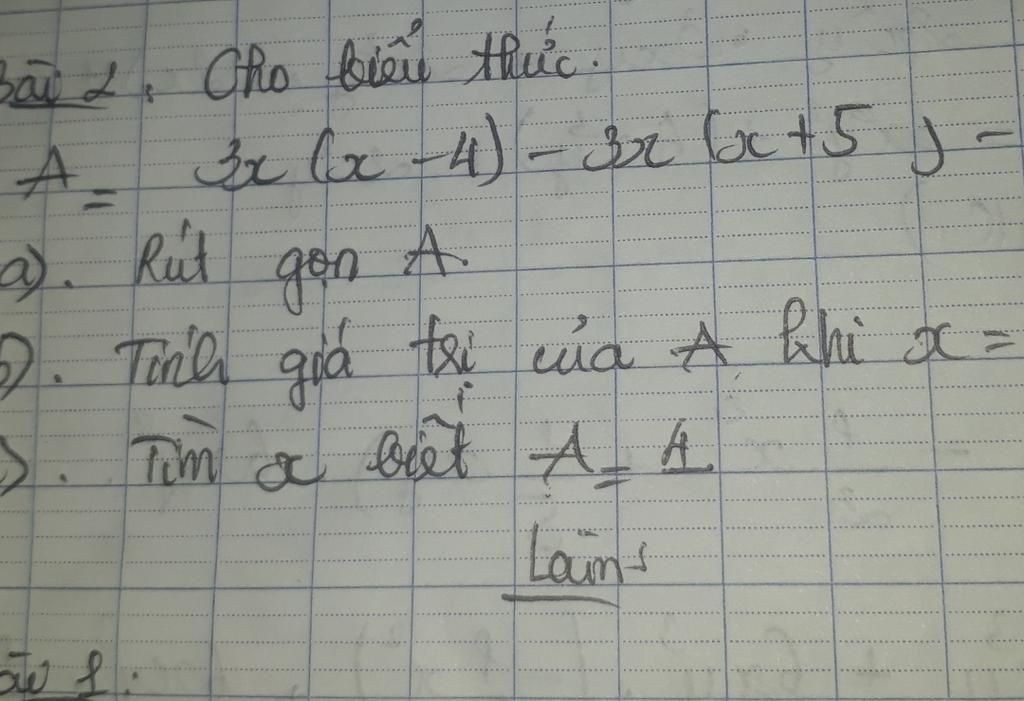 Bài 2. Cho biểu thức.
A = 3x (x - 4) - 3x (x + 5) -
a). Rút gọn A.
b). Tính giá trị của A khi x =
). Tìm x biết A = 1
Làm
1: